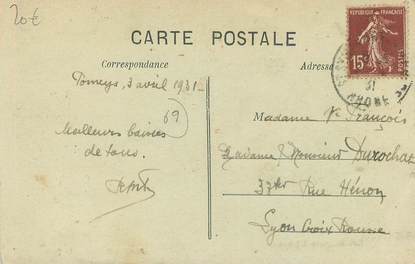 20€
CARTE POSTALE
RÉPUBLIQUE FRANÇAISE
15c
POSTES
Correspondance
Adresse
31
RHONE
3 avril 1931
69
Meilleurs baisers
de tous.
Madame Ve François
Madame & Monsieur Durochat
37ter Rue Hénon
Lyon Croix Rousse